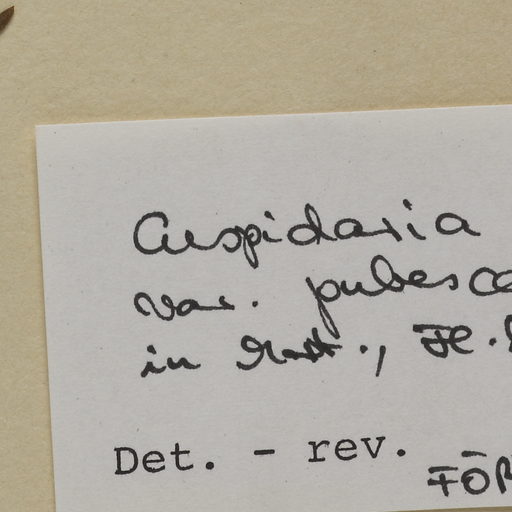 Cuspidaria
var. pubesce
in Mart., Fl.
Det. - rev.
FÖR